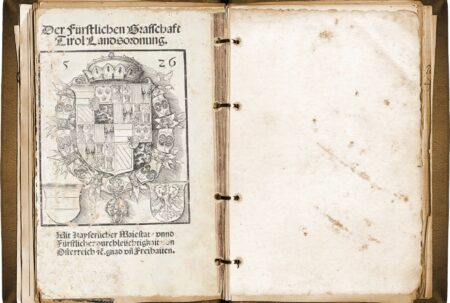 Der Fürstlichen Graffschaft
Tirol Landsordnung.
1526
Mit Kayserlicher Maiestat vnnd
Fürstlicher durchleüchtigkait von
Österreich ꝛc. gnad vñ Freihaiten.